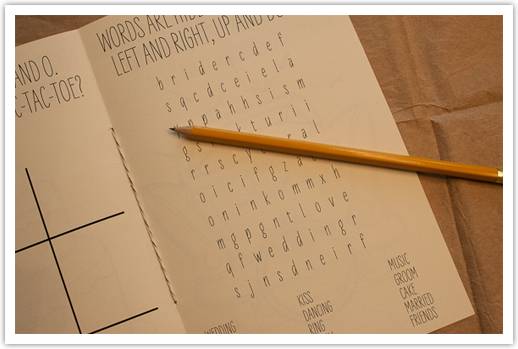 AND O.
-TAC-TOE?
WORDS ARE
LEFT AND RIGHT, UP AND
b r i d e r c d e f
s q c d c e i e l a
p a h h s i s m
g k t u r i j
r r s c y r a l
o i c i f g z a
o n i n k o m m x h
m g p g n t l o v e
q f w e d d i n g r
s j n s d n e i r f
WEDDING
KISS
DANCING
RING
MUSIC
GROOM
CAKE
MARRIED
FRIENDS